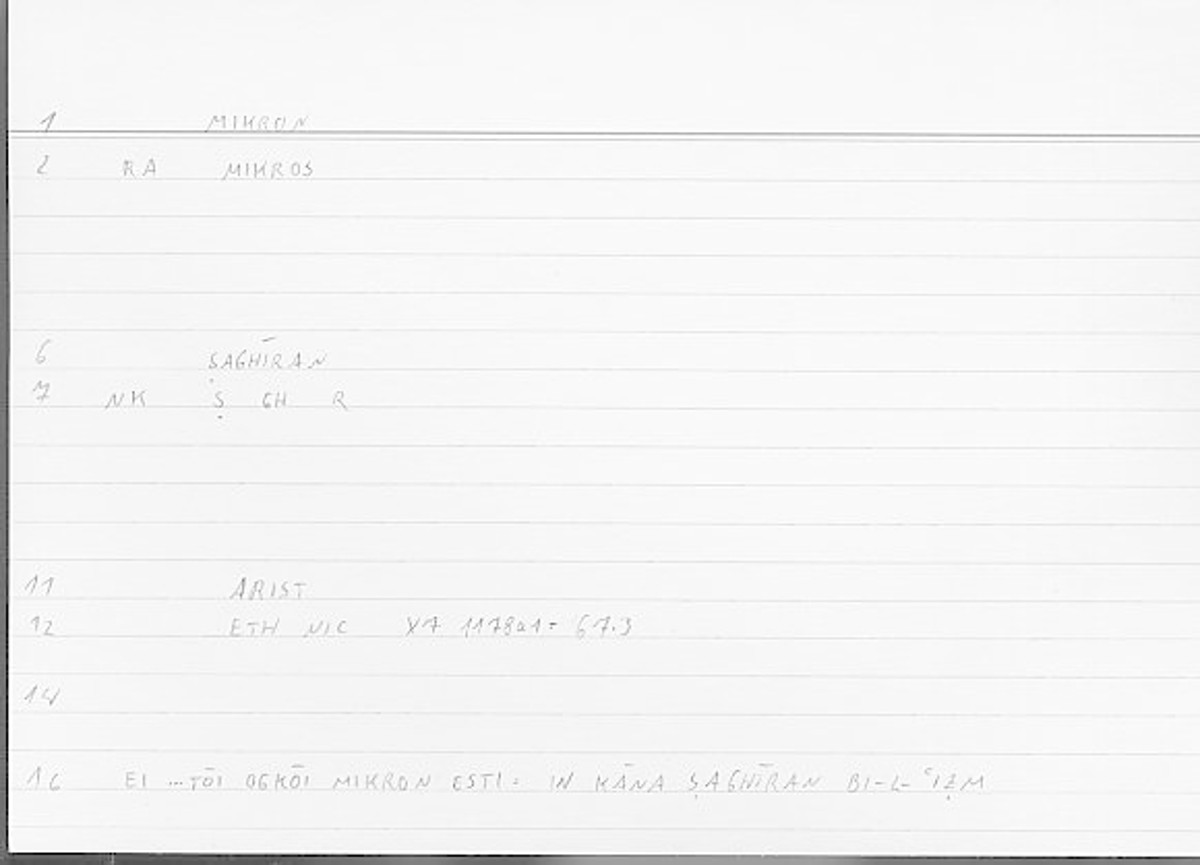 1 MIKRON
2 RA MIKROS
6 ṢAGHĪRAN
7 NK Ṣ GH R
11 ARIST
12 ETH NIC X7 1178a1= 67.3
14
16 EI ...TŌI OGKŌI MIKRON ESTI = IN KĀNA ṢAGHĪRAN BI-L-ʿIẒM